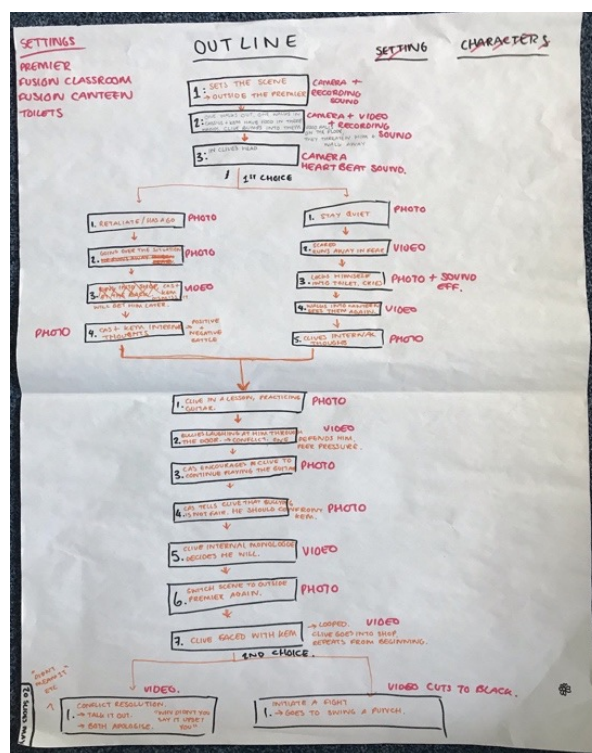 SETTINGS
PREMIER
FUSION CLASSROOM
FUSION CANTEEN
TOILETS
OUTLINE
SETTING CHARACTERS
1: SETS THE SCENE
→ OUTSIDE THE PREMIER
CAMERA +
RECORDING
SOUND
2:
CAMERA + VIDEO
+ RECORDING
SOUND
3: IN CLIVES HEAD
CAMERA
HEARTBEAT SOUND.
1ST CHOICE
1. RETALIATE/HAS A GO
PHOTO
2. GOING OVER THE SITUATION
PHOTO
3.
WILL GET HIM LATER.
VIDEO
PHOTO
4. CAS + KEM INTERNAL
THOUGHTS
POSITIVE
NEGATIVE
BATTLE
1. STAY QUIET
PHOTO
2. SCARED
RUNS AWAY IN FEAR
VIDEO
3. LOCKS HIMSELF
INTO TOILET, CRIES
PHOTO + SOUND
EFF.
4. WALKS INTO CANTEEN
SEES THEM AGAIN.
VIDEO
5. CLIVES INTERNAL
THOUGHT
PHOTO
1. CLIVE IN A LESSON, PRACTICING
GUITAR.
PHOTO
2. BULLIES LAUGHING AT HIM THROUGH
THE DOOR. → CONFLICT. ONE DEFENDS HIM,
PEER PRESSURE.
VIDEO
3. CAS ENCOURAGES CLIVE TO
CONTINUE PLAYING THE GUITAR
PHOTO
4. CAS TELLS CLIVE THAT BULLYING
IS NOT FAIR. HE SHOULD CONFRONT
KEM.
PHOTO
5. CLIVE INTERNAL MONOLOGUE
DECIDES HE WILL.
VIDEO
6. SWITCH SCENE TO OUTSIDE
PREMIER AGAIN.
PHOTO
7. CLIVE FACED WITH KEM
→ LOOPED. VIDEO
CLIVE GOES INTO SHOP,
REPEATS FROM BEGINNING.
2ND CHOICE.
VIDEO.
CONFLICT RESOLUTION.
1. → TALK IT OUT.
→ BOTH APOLOGISE.
"WHY DIDN'T YOU
SAY IT UPSET
YOU"
"DIDN'T
MEAN IT"
ETC
VIDEO CUTS TO BLACK.
INITIATE A FIGHT
1. → GOES TO SWING A PUNCH.